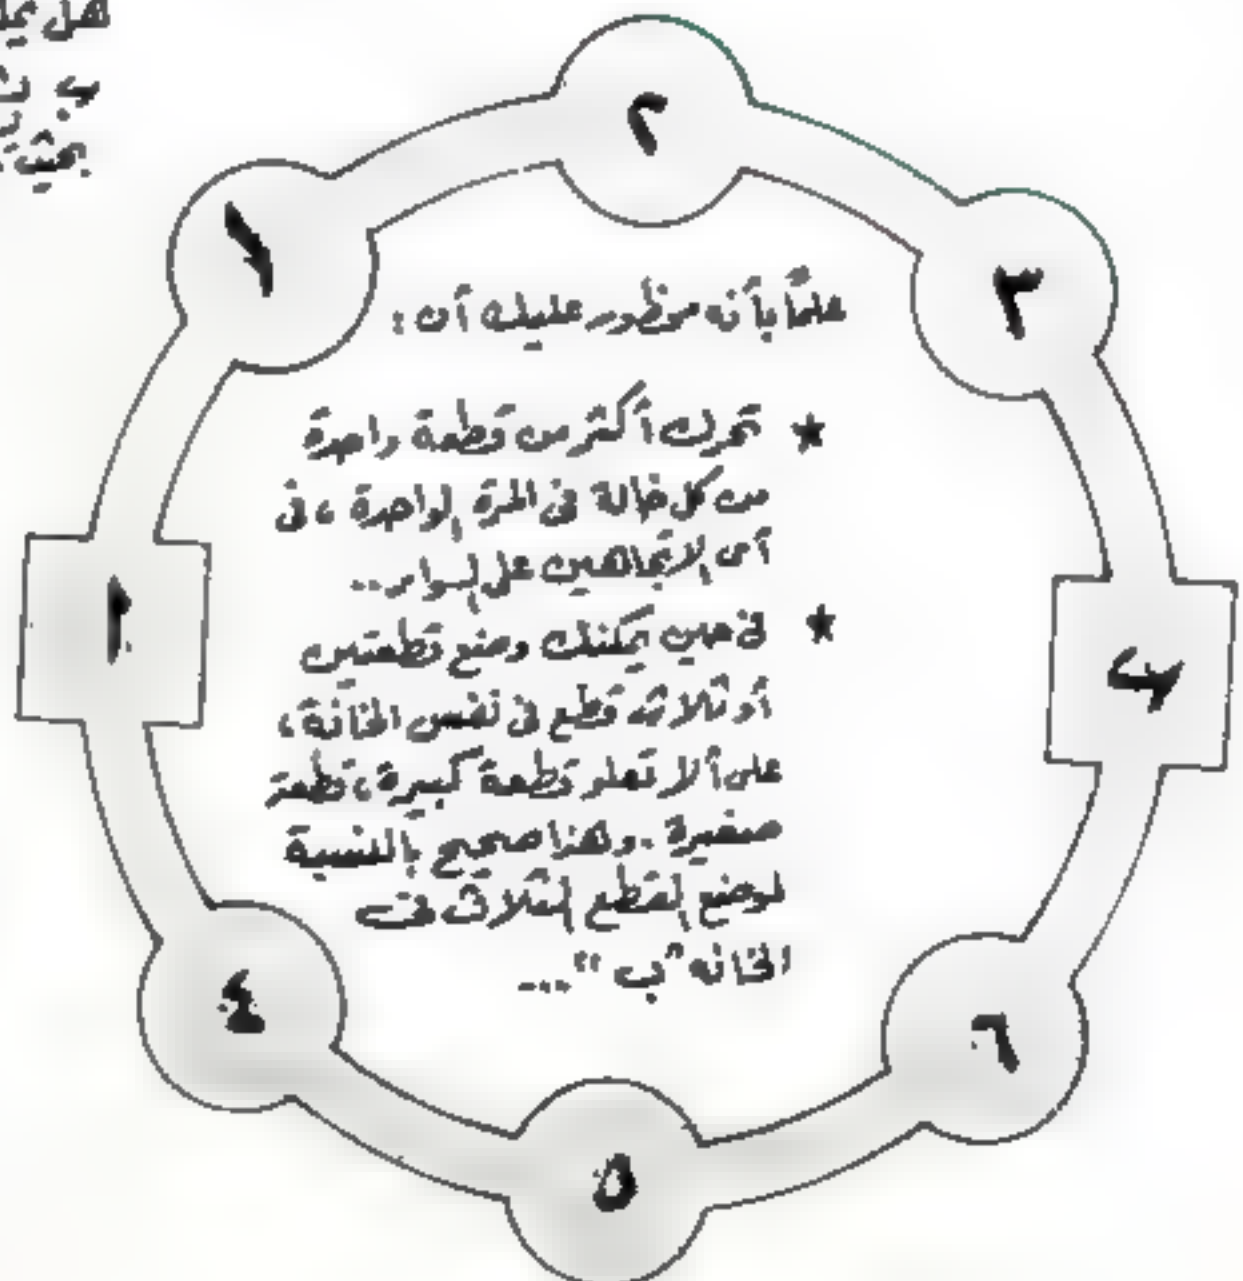 هل
ب
بحيث
٢
١
٣
علمًا بأنه محظور عليك أن :
★ تحرك أكثر من قطعة واحدة
من كل خانة فى المرة الواحدة ، فى
أى الاتجاهين على السواء ..
★ فى حين يمكنك وضع قطعتين
أو ثلاثة قطع فى نفس الخانة ،
على ألا تعلو قطعة كبيرة ، قطعة
صغيرة . وهذا صحيح بالنسبة
لوضع القطع الثلاث فى
الخانه "ب" ...
أ
ب
٤
٦
٥